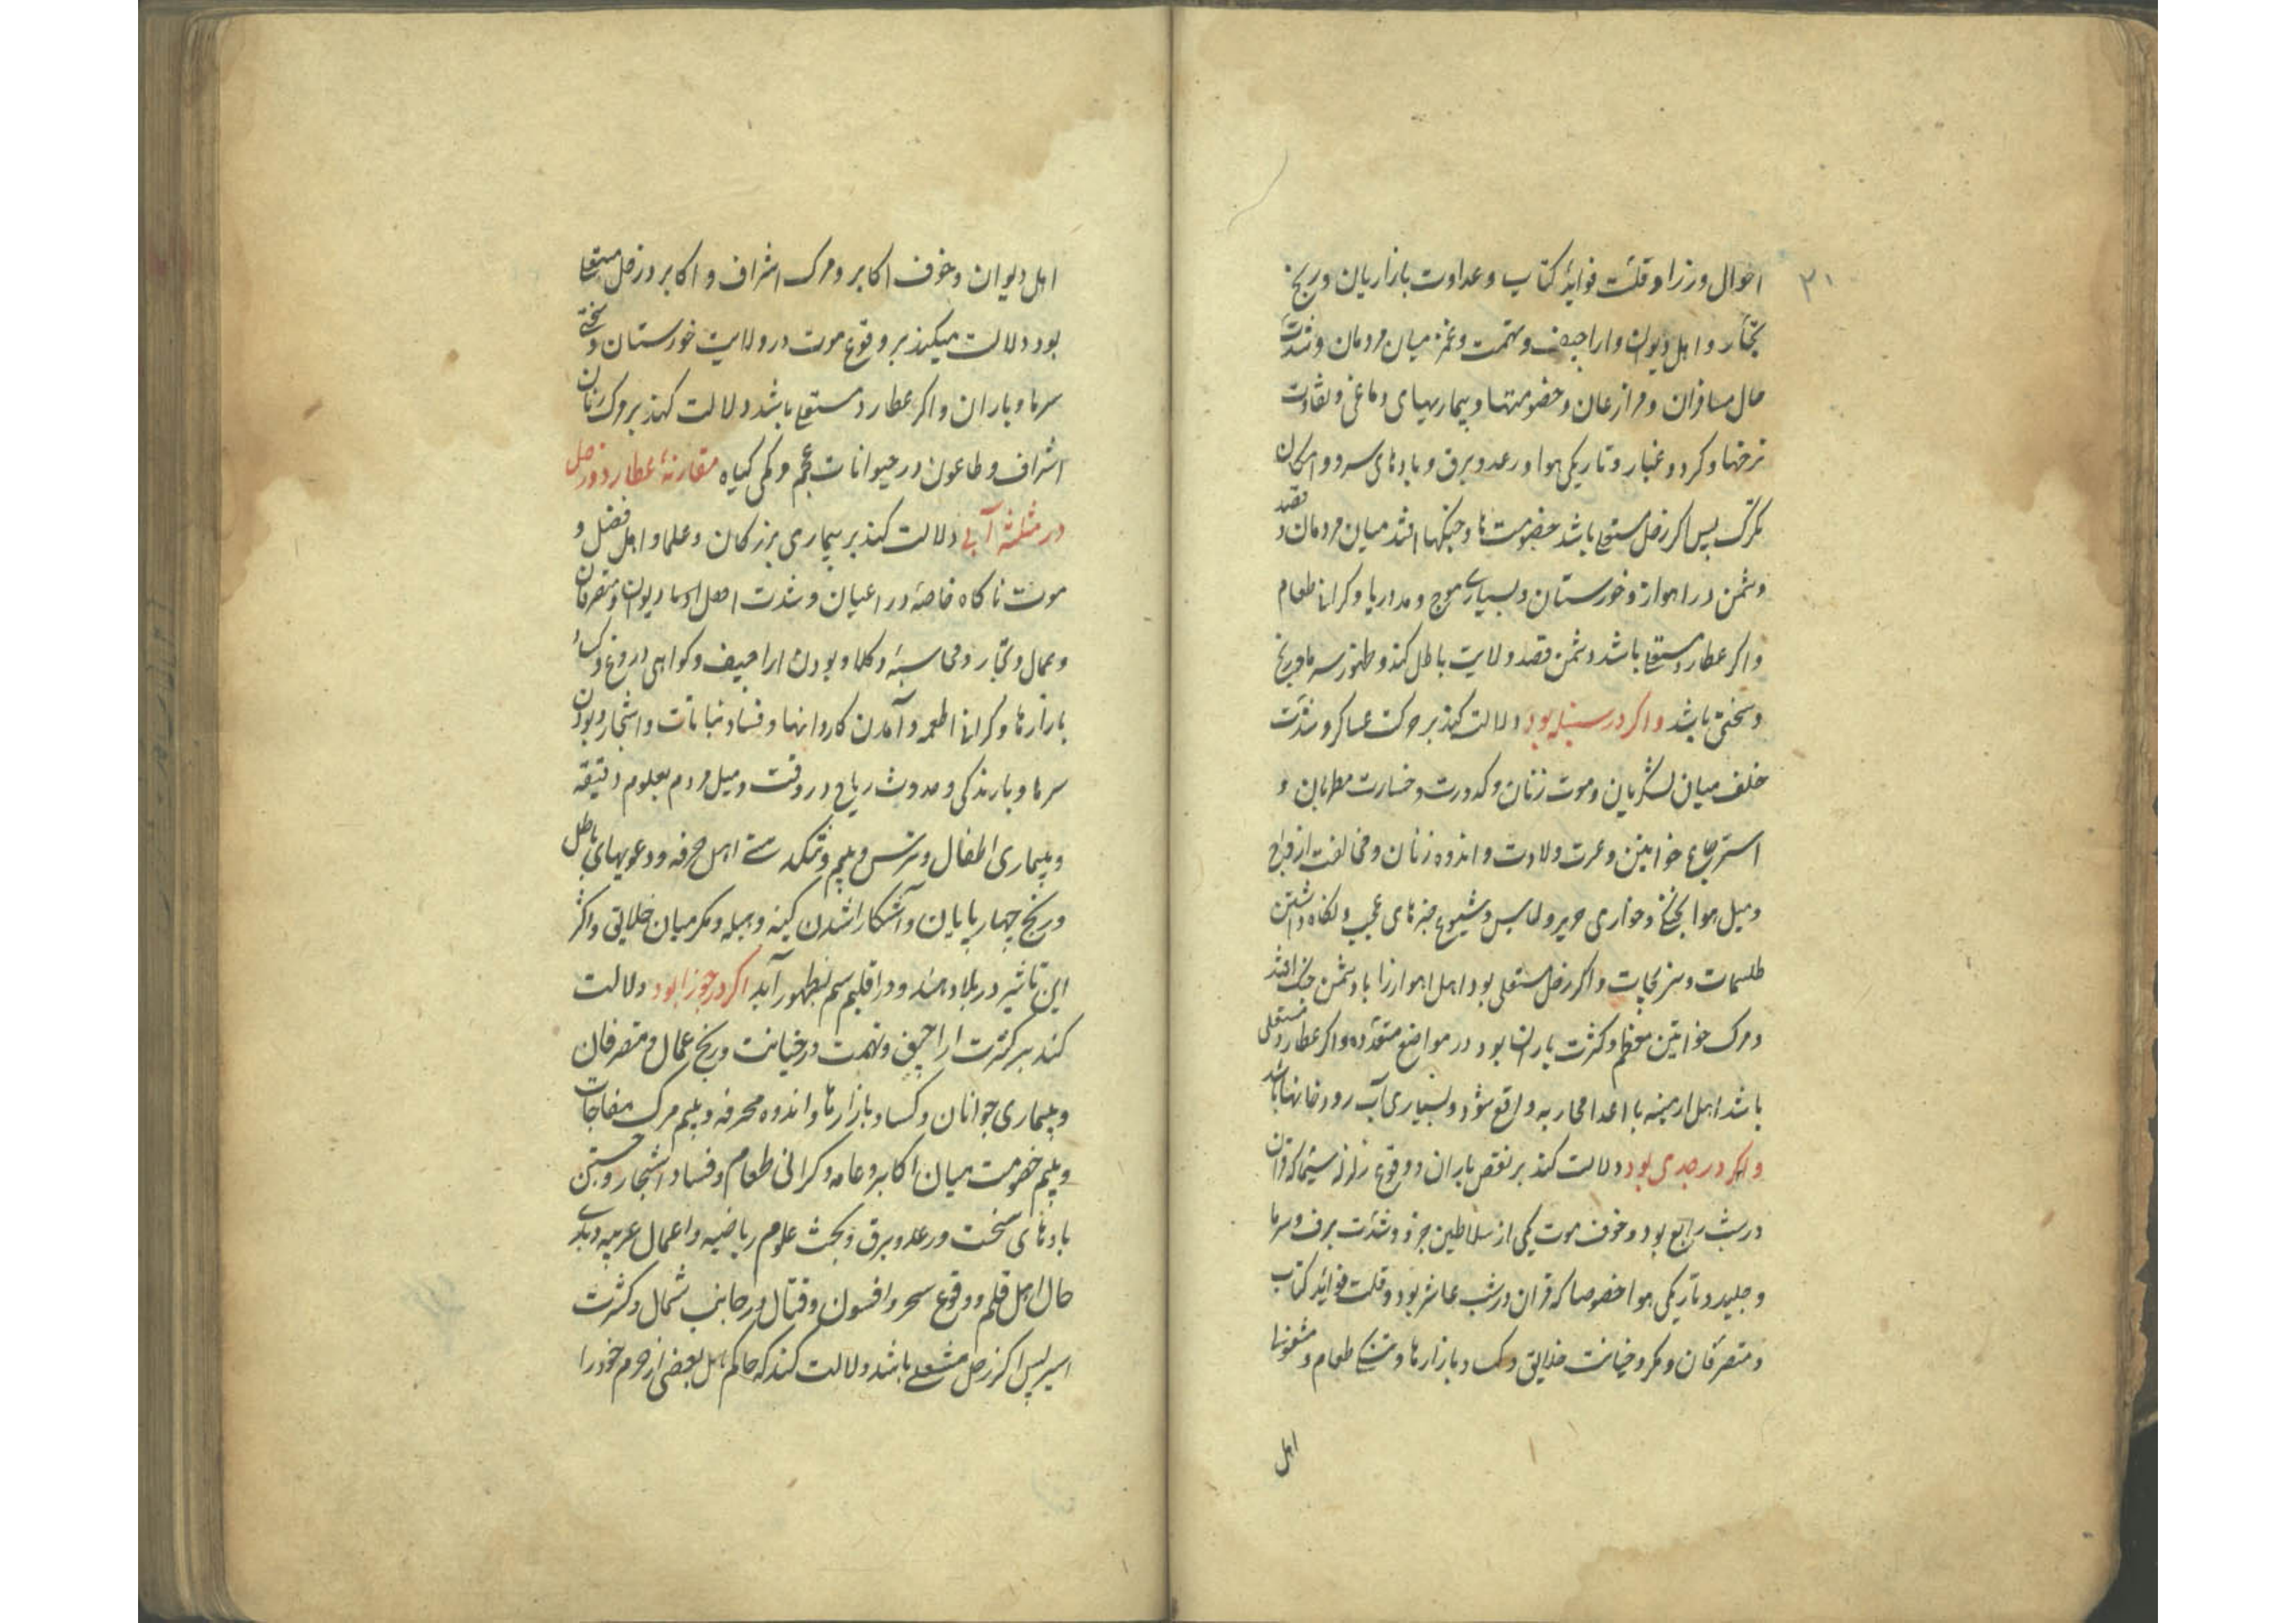 ۳۱
احوال وزرا و قلت فواید کتاب و عداوت بازاریان و رنج
تجار و اهل دیوان و اراجیف و تهمت و غمز میان مردمان و شدت
حال مسافران و مزارعان و خصومتها و بیماریهای دماغی و تفاوت
نرخها و کرد و غبار و تاریکی هوا و رعد و برق و بادهای سرد و امکان
تکرک پس اکر زحل مستعلی باشد خصومت‌ها و جنکها افتد میان مردمان و قصد
دشمن در اهواز و خورستان و بسیاری موج و مد دریا و کرانی طعام
و اکر عطارد مستعلی باشد دشمن قصد ولایت بابل کند و ظهور سرما و رنج
و سختی باشد و اکر در سنبله بود دلالت کند بر حرکت عساکر و شدت
خلف میان لشکریان و موت زنان و کدورت و خسارت مطربان و
استرجاع خواتین و عسرت ولادت و اندوه زنان و مخالفت ازواج
و میل هوا بخنکی و خواری حریر و لباس و شیوع خبرهای عجیب و نکاه داشتن
طلسمات و نیرنجات و اکر زحل مستعلی بود اهل اهواز را با دشمن جنک افتد
و مرک خواتین معظم و کثرت باران بود در مواضع متعدده و اکر عطارد مستعلی
باشد اهل ارمینه با اعدا محاربه واقع شود و بسیاری آب رودخانها باشد
و اکر در جدی بود دلالت کند بر نقص باران و وقوع زلزله سیما که قران
در شب رابع بود و خوف موت یکی از سلاطین جزو و شدت برف و سرما
و جلید و تاریکی هوا خصوصا که قران در شب عاشر بود و قلت فواید کتاب
و متصرفان و مکر و خیانت خلایق و کساد بازارها و تنکی طعام و
اهل
اهل دیوان و خوف اکابر و مرک اشراف و اکابر و زحل مستعلی
بود دلالت میکند بر وقوع موت در ولایت خورستان و سختی
سرما و باران و اکر عطارد مستعلی باشد دلالت کند بر مرک زنان
اشراف و طاعون در حیوانات عجم و کمی کیاه مقارنهٔ عطارد و زحل
در مثلثه آبی دلالت کند بر بیماری بزرکان و علما و اهل فضل و
موت ناکاه خاصه در اعیان و شدت دیوان و متصرفان
و عمال و تجار و محاسبهٔ وکلا و بودن اراجیف و کواهی دروغ و کساد
بازارها و کرانی اطعمه و آمدن کاروانها و فساد نباتات و اشجار و بودن
سرما و بارندکی و حدوث ریاح در وقت و میل مردم بعلوم دقیقه
و بیماری اطفال و ترس و بیم و تنکدستی اهل حرفه و دعویهای باطل
و رنج چهارپایان و آشکارا شدن کینه و حیله و مکر میان خلایق و اکثر
این تاثیر در بلاد هند و در اقلیم سیم بظهور آید اکر در جوزا بود دلالت
کند بر کثرت اراجیف و تهمت و خیانت و رنج عمال و متصرفان
و بیماری جوانان و کساد بازارها و اندوه محترفه و بیم مرک مفاجات
و بیم خصومت میان اکابر و عامه و کرانی طعام و فساد اشجار و جستن
بادهای سخت و رعد و برق و بحث علوم ریاضیه و اعمال غریبه و بدی
حال اهل قلم و وقوع سحر و افسون و قتال در جانب شمال و کثرت
اسیر پس اکر زحل مستعلی باشد دلالت کند که حاکم بابل بعضی از حرم خود را